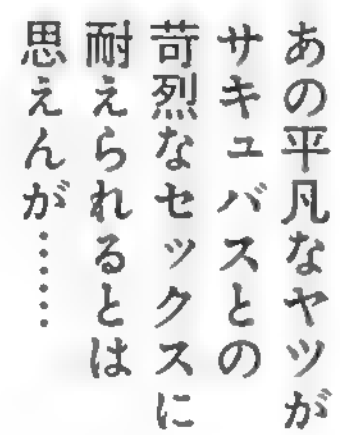 あの平凡なヤツが
サキュバスとの
苛烈なセックスに
耐えられるとは
思えんが……